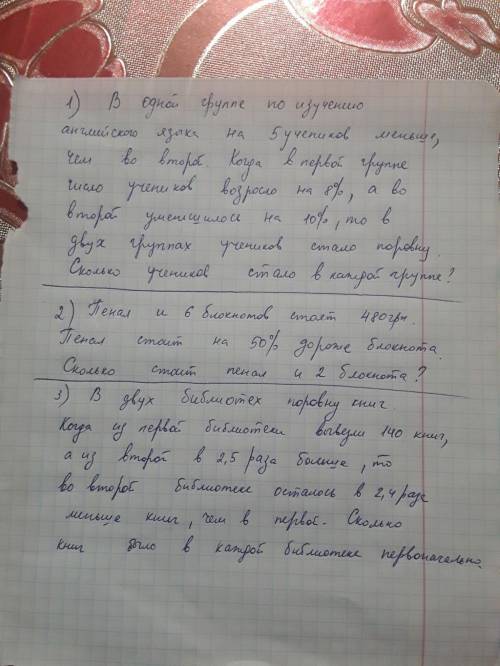 1) В одной группе по изучению
английского языка на 5 учеников меньше,
чем во второй. Когда в первой группе
число учеников возросло на 8%, а во
второй уменшилось на 10%, то в
двух группах учеников стало поровну.
Сколько учеников стало в каждой группе?
2) Пенал и 6 блокнотов стоят 480грн.
Пенал стоит на 50% дороже блокнота.
Сколько стоит пенал и 2 блокнота?
3) В двух библиотех поровну книг.
Когда из первой библиотеки вывезли 140 книг,
а из второй в 2,5 раза больше, то
во второй библиотеке осталось в 2,4 раза
меньше книг, чем в первой. Сколько
книг было в каждой библиотеке первоначально.